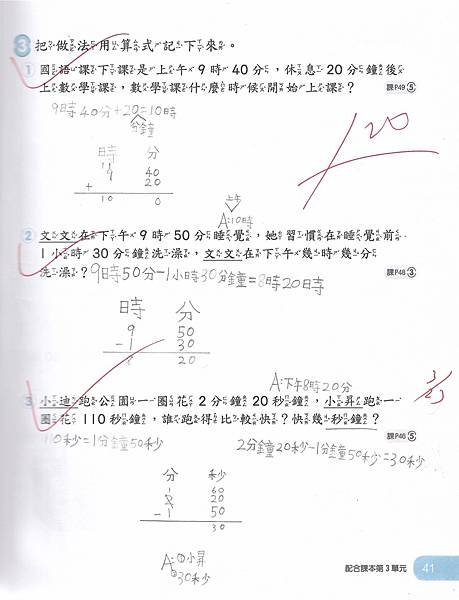 3 把做法用算式記下來。
1 國語課下課是上午9時40分，休息20分鐘後
上數學課，數學課什麼時候開始上課？
課P49 5
9時40分+20=10時
分鐘
時 分
9 40
+ 20
10 0
120
上午
A:10時
2 文文在下午9時50分睡覺，她習慣在睡覺前
1小時30分鐘洗澡，文文在下午幾時幾分
洗澡？ 9時50分-1小時30分鐘=8時20日寺
課P48 3
時 分
9 50
-1 30
8 20
A:下午8時20分
3 小迪跑公園一圈花2分鐘20秒鐘，小昇跑一
圈花110秒鐘，誰跑得比較快？快幾秒鐘？
課P46 5
110秒=1分鐘50秒
2分鐘20秒-1分鐘50秒=30秒
分 秒
1 60
2 20
-1 50
30
A:①小昇
②30秒
配合課本第3單元 41